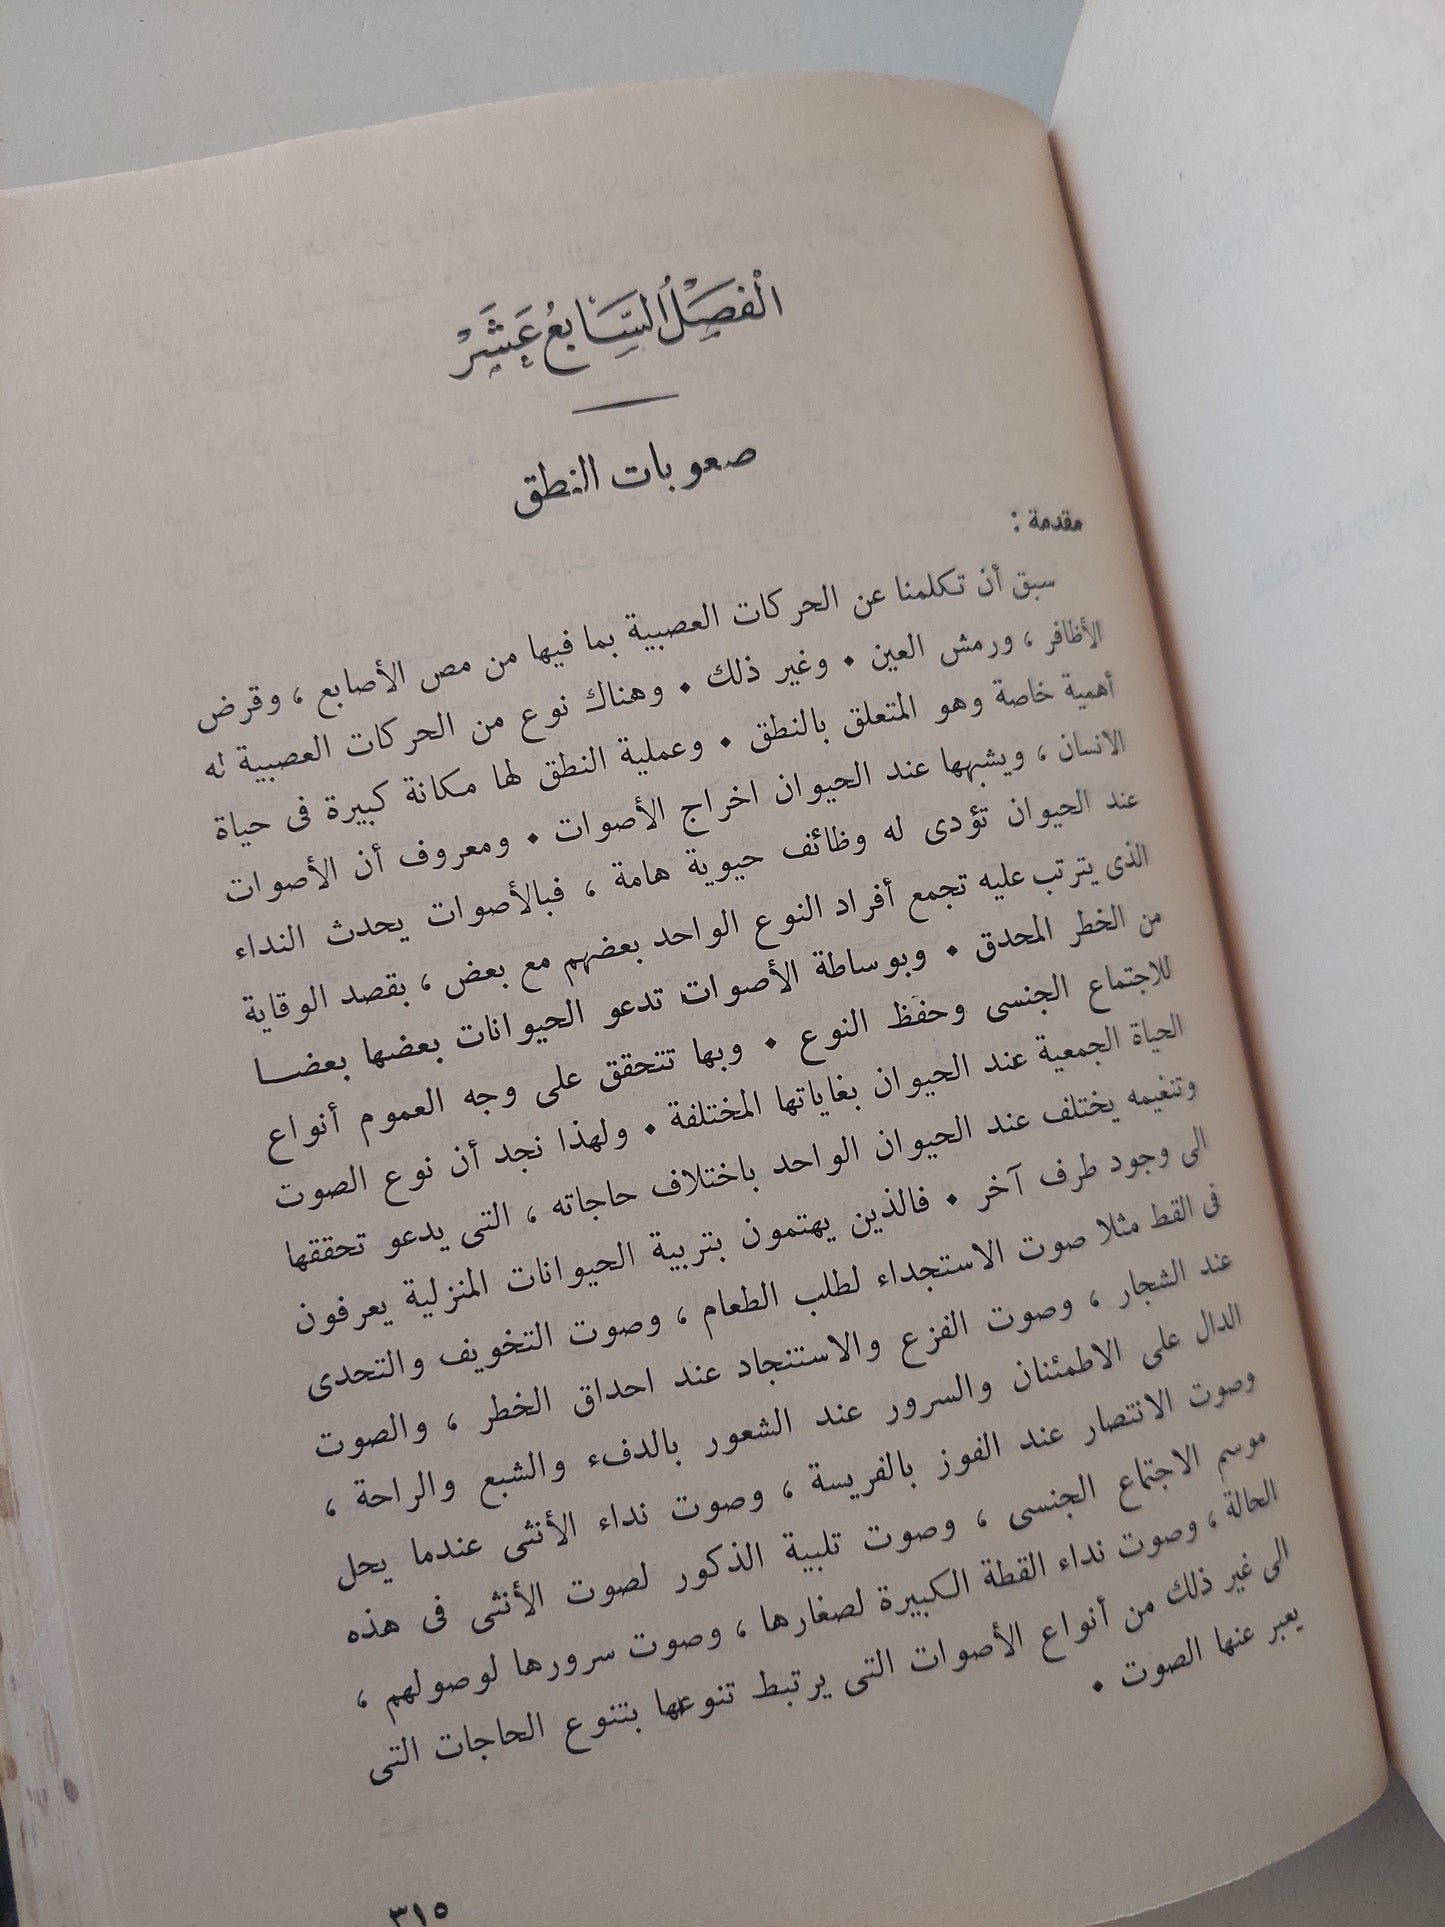 الْفَصْلُ السَّابِعُ عَشَرَ
صعوبات النطق
مقدمة :
سبق أن تكلمنا عن الحركات العصبية بما فيها من مص الأصابع ، وقرض
الأظافر ، ورمش العين . وغير ذلك . وهناك نوع من الحركات العصبية له
أهمية خاصة وهو المتعلق بالنطق . وعملية النطق لها مكانة كبيرة فى حياة
الانسان ، ويشبهها عند الحيوان اخراج الأصوات . ومعروف أن الأصوات
عند الحيوان تؤدى له وظائف حيوية هامة ، فبالأصوات يحدث النداء
الذى يترتب عليه تجمع أفراد النوع الواحد بعضهم مع بعض ، بقصد الوقاية
من الخطر المحدق . وبوساطة الأصوات تدعو الحيوانات بعضها بعضــا
للاجتماع الجنسى وحفظ النوع . وبها تتحقق على وجه العموم أنواع
الحياة الجمعية عند الحيوان بغاياتها المختلفة . ولهذا نجد أن نوع الصوت
وتنغيمه يختلف عند الحيوان الواحد باختلاف حاجاته ، التى يدعو تحققها
الى وجود طرف آخر . فالذين يهتمون بتربية الحيوانات المنزلية يعرفون
فى القط مثلا صوت الاستجداء لطلب الطعام ، وصوت التخويف والتحدى
عند الشجار ، وصوت الفزع والاستنجاد عند احداق الخطر ، والصوت
الدال على الاطمئنان والسرور عند الشعور بالدفء والشبع والراحة ،
وصوت الانتصار عند الفوز بالفريسة ، وصوت نداء الأنثى عندما يحل
موسم الاجتماع الجنسى ، وصوت تلبية الذكور لصوت الأنثى فى هذه
الحالة ، وصوت نداء القطة الكبيرة لصغارها ، وصوت سرورها لوصولهم ،
الى غير ذلك من أنواع الأصوات التى يرتبط تنوعها بتنوع الحاجات التى
يعبر عنها الصوت .
٣١٥